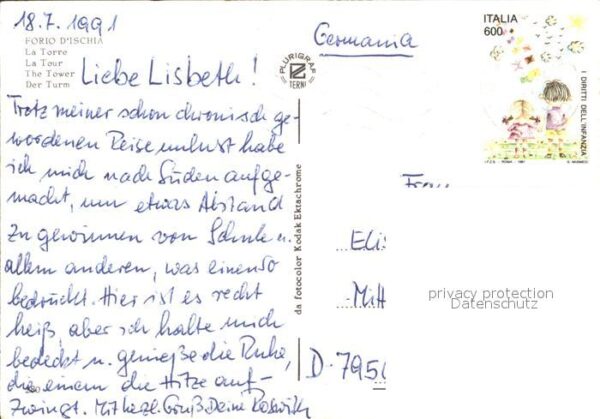 18.7.1991
FORIO D'ISCHIA
La Torre
La Tour
The Tower
Der Turm
Liebe Lisbeth!
Trotz meiner schon chronisch ge-
wordenen Reiseunlust habe
ich mich nach Süden aufge-
macht, um etwas Abstand
zu gewinnen von Schule u.
allem anderen, was einen so
bedrückt. Hier ist es recht
heiß, aber ich halte mich
bedeckt u. genieße die Ruhe,
die einem die Hitze auf-
zwingt. Mit herzl. Gruß Deine Roswith
PLURIGRAF
TERNI
da fotocolor Kodak Ektachrome
Germania
ITALIA
600
I DIRITTI DELL'INFANZIA
I.P.Z.S. - ROMA - 1991
Frau
Elis
Mitt
D-795
privacy protection
Datenschutz